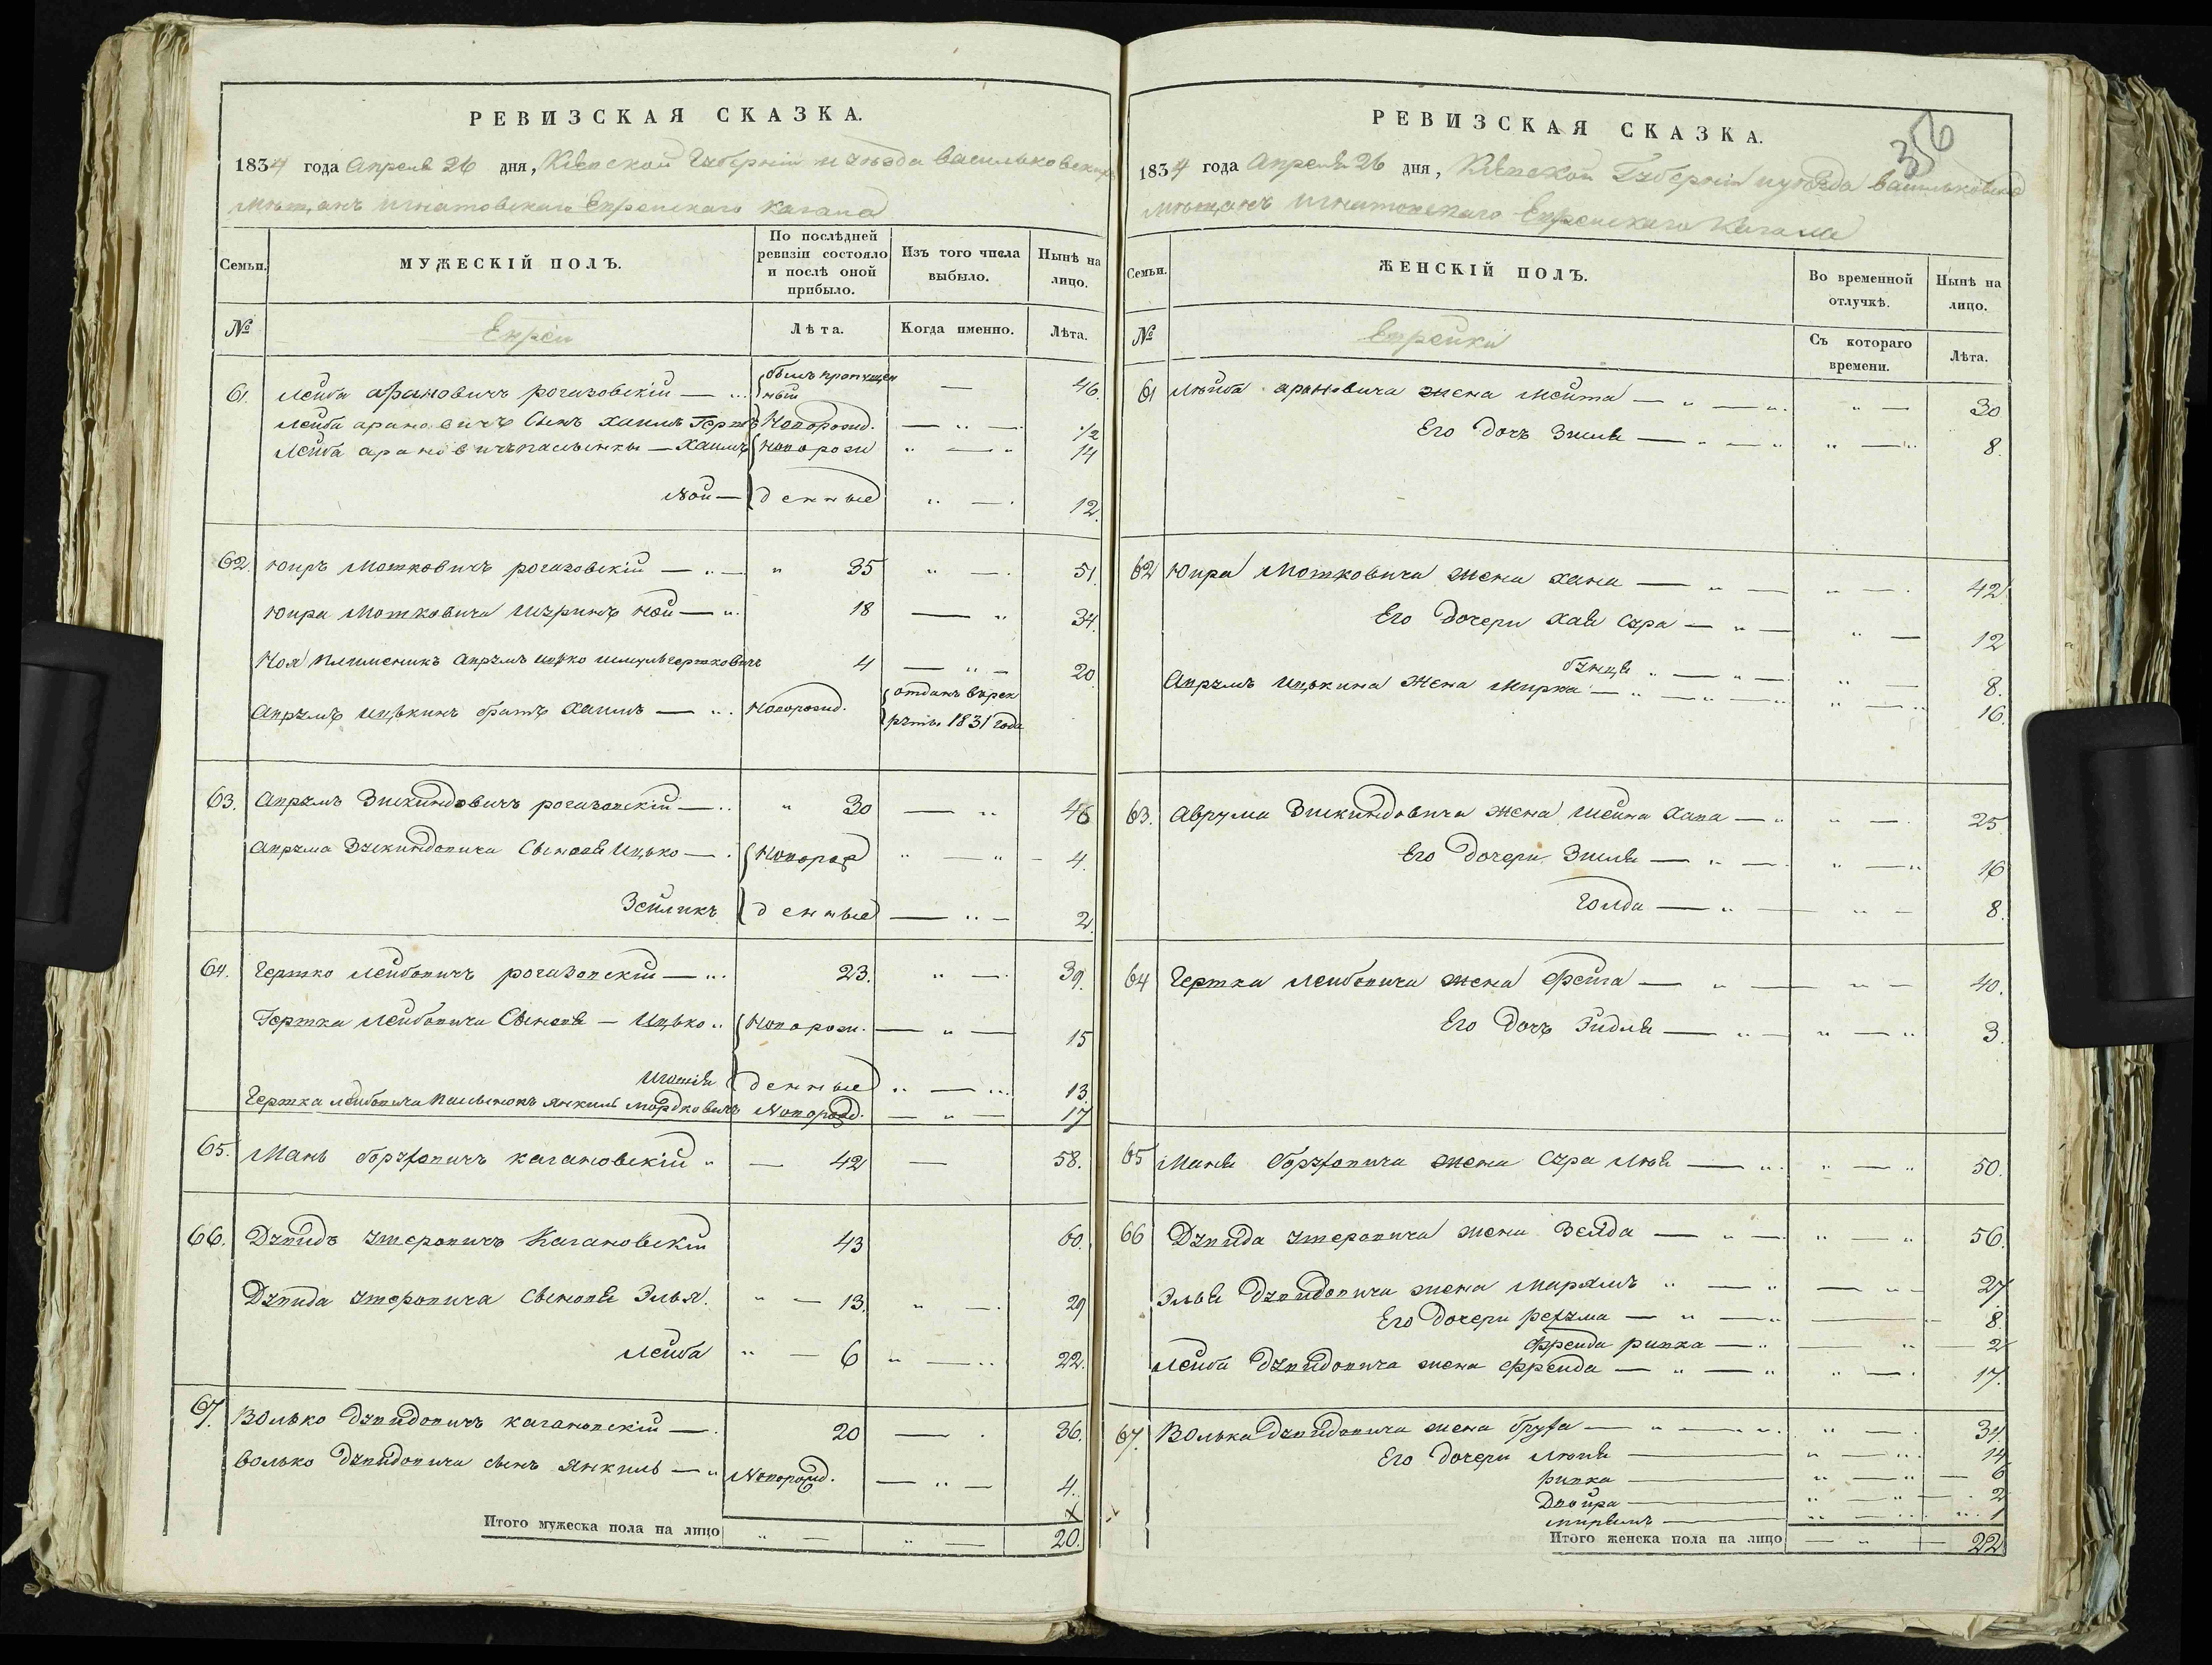 РЕВИЗСКАЯ СКАЗКА.
1834 года Апреля 26 дня, Кіевской Губерніи и уѣзда Васильковскаго
мѣщанъ Игнатовскаго Еврейскаго Кагала
Семьи.
МУЖЕСКІЙ ПОЛЪ.
По послѣдней ревизіи состояло и послѣ оной прибыло.
Изъ того числа выбыло.
Нынѣ на лицо.
№
Евреи
Лѣта.
Когда именно.
Лѣта.
61. Лейба Арановичъ рогазовскій — былъ пропущенный — 46.
Лейба Арановичъ Сынъ Хаимъ Новорожд. — 1/2
Лейба Арановичъ пасынки — Хаимъ новорож 14
Ной — денные 12.
62. Юиръ Мотковичъ рогазовскій — 35 — 51.
Юира Мотковича Шуринъ Ной — 18 — 34.
Ноя племеникъ Аврумъ Ицко 4 — 20
Аврумъ Ицькинъ братъ Хаимъ — Новорожд. отданъ врекруты 1831 года
63. Аврумъ Зискиндовичъ рогазовскій — 30 — 46
Аврума Зускиндовича Сыновя Ицько — Новорож — 4.
Зейликъ денные — 2.
64. Гертко Лейбовичъ рогазовскій — 23. — 39.
Гертка Лейбовича Сыновя — Ицько Новорож. — 15
денные — 13.
Гертка Лейбовича Пасынокъ Янкиль Мордковичъ Новорожд. — 17
65. Мань Борухович кагановскій — 42 — 58.
66. Дувидъ Кагановскій 43 60.
Дувида Сыновя Элья. — 13. — 29
Лейба — 6 — 22.
67. Волько Дувидовичъ кагановскій — 20 — 36.
Волько Дувидовича сынъ Янкиль — Новорожд. — 4.
Итого мужеска пола на лицо — — 20.
356
РЕВИЗСКАЯ СКАЗКА.
1834 года Апреля 26 дня, Кіевской Губерніи и уѣзда Васильковска
мѣщанъ Игнатовскаго Еврейскаго Кагала
Семьи.
ЖЕНСКІЙ ПОЛЪ.
Во временной отлучкѣ.
Нынѣ на лицо.
№
Еврейки
Съ котораго времени.
Лѣта.
61 Лейба Арановича жена Мейта — 30
Его дочъ Зисля — 8.
62 Юира Мотковича жена Хана — 42.
Его дочери Хая Сура — 12
бунця — 8.
Аврумъ Ицькина Жена Мирка — 16.
63. Аврума Зискиндовича жена Шейна Хана — 25.
Его дочери Зисля — 16
Голда — 8.
64 Гертка Лейбовича жена Фейга — 40.
Его дочъ Гидля — 3.
65 Маня Боруховича жена Сура — 50.
66 Дувида жена Зелда — 56.
Элья Дувидовича жена Марямъ — 27
Его дочери рехума — 8.
Фрейда ривка — 2
Лейба Дувидовича жена Фрейда — 17.
67. Волька Дувидовича жена Бруха — 34.
Его дочери — 14
ривка — 6
Двойра — 2
Мирьямъ — 1
Итого женска пола на лицо — 22